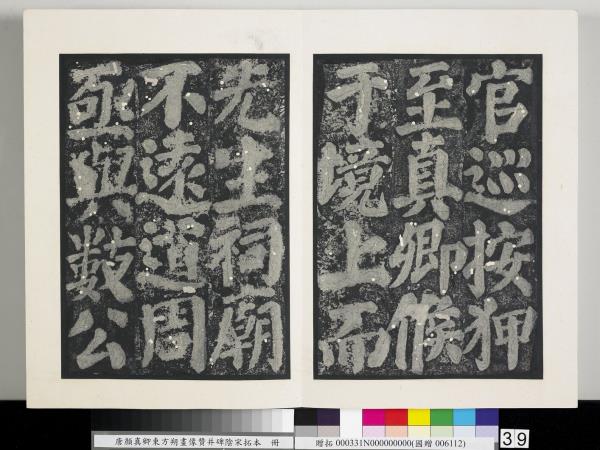 官巡按狎
至真卿候
于境上而
先生祠廟
不遠道周
亟與數公
唐顏真卿東方朔畫像贊并碑陰宋拓本 冊
贈拓 000331N000000000(國贈 006112)
39